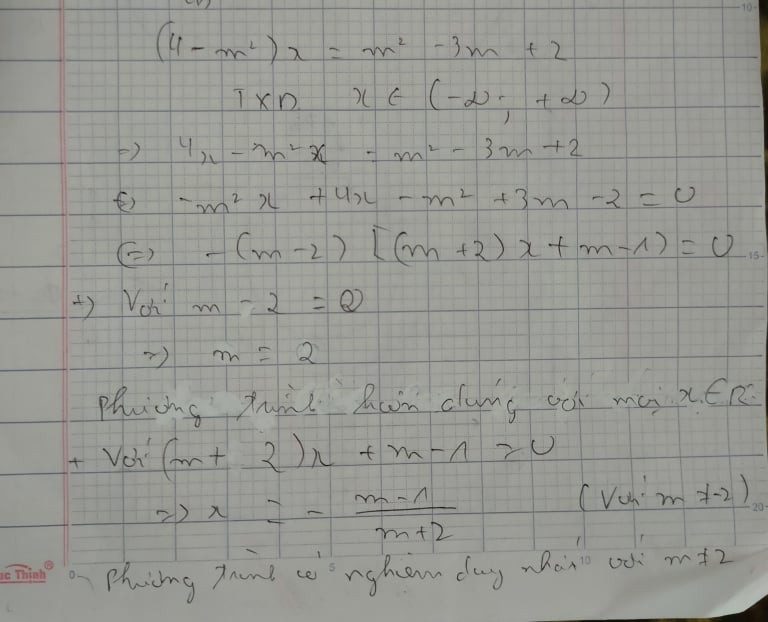 (4 - m²)x = m² - 3m + 2
TXD x ∈ (-∞; +∞)
=> 4x - m²x = m² - 3m + 2
<=> -m²x + 4x - m² + 3m - 2 = 0
<=> -(m-2) [(m+2)x + m - 1) = 0
+) Với m - 2 = 0
=> m = 2
phương trình luôn đúng với mọi x ∈ R.
+ Với (m + 2)x + m - 1 = 0
=> x = - (m-1)/(m+2) (Với m ≠ -2)
phương trình có nghiệm duy nhất với m ≠ 2
ục Thịnh®
10
15
20
0 5 10